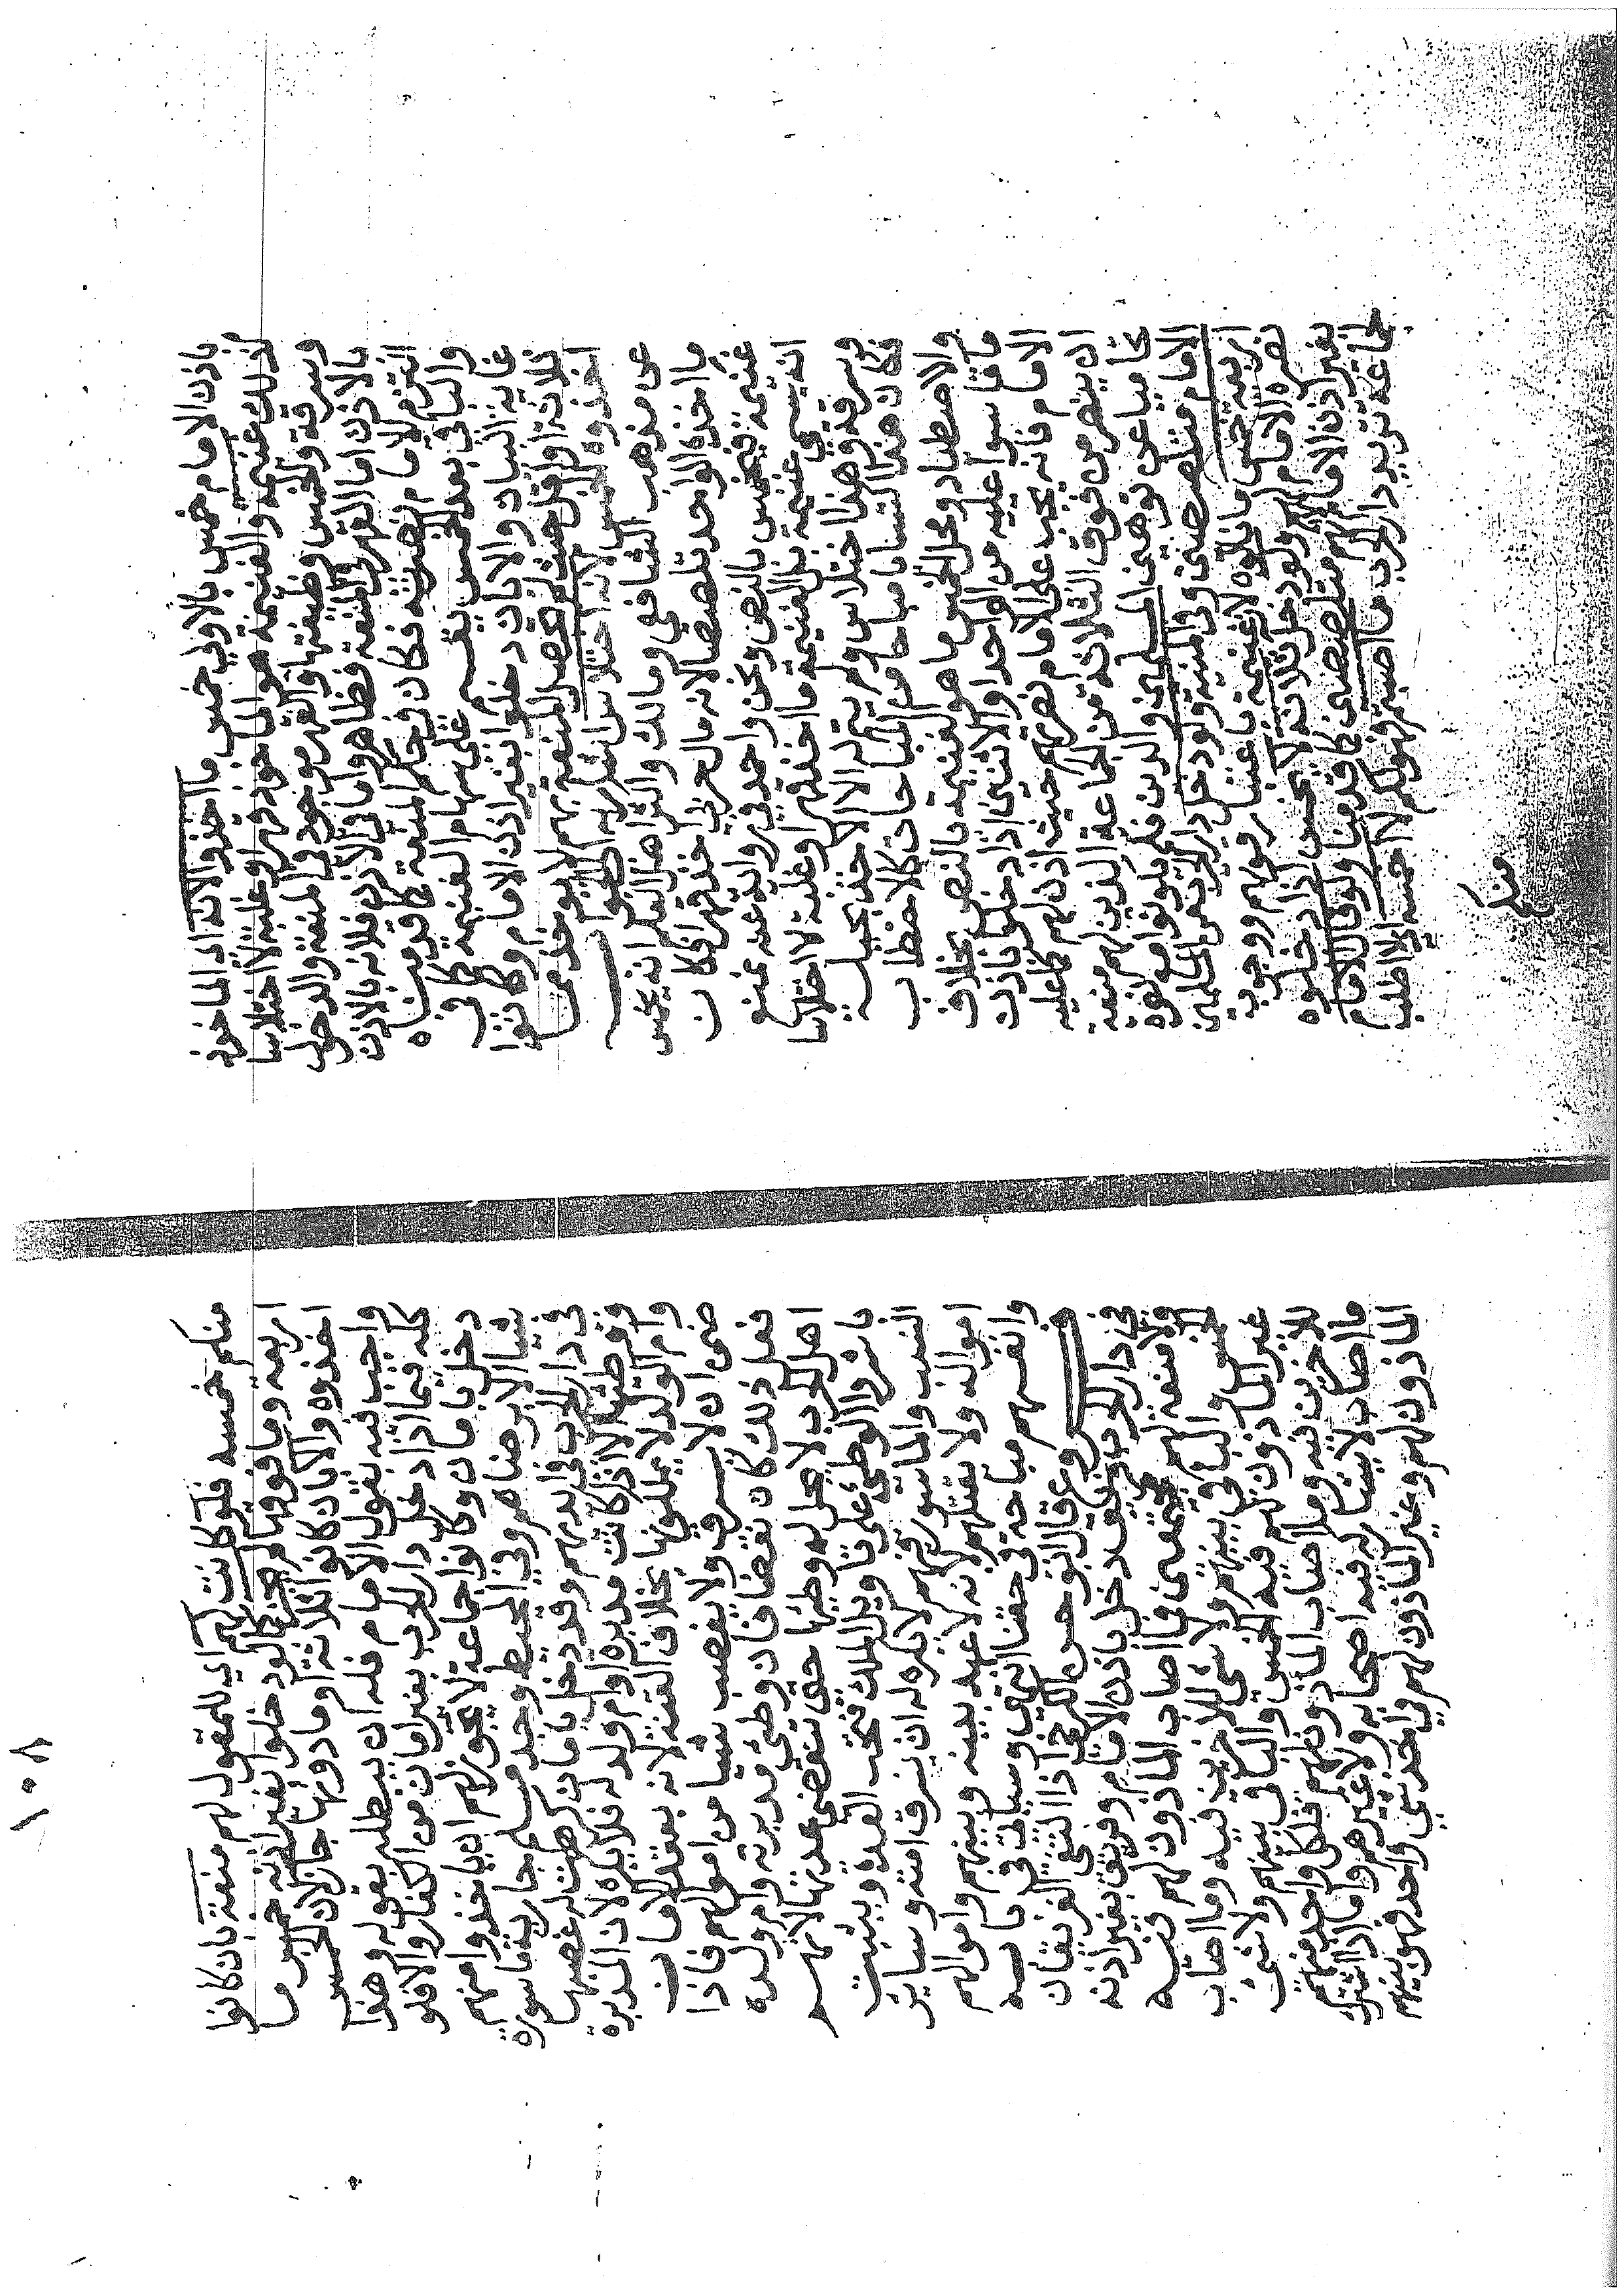 باذن الامام خمس بالاولي خمس ما اخذوا لانه اذا الماخوذ
لذلك غنيمة والغنيمة هو الماخوذ قهرا وغلبة لا اختلاسا
وسرقة والخمس وظيفتها والقهر موجود في المنعة والدخول
بالاذن اما القهر في المنعة فظاهر واما في الاذن فلانه بالاذن
التزم الامام نصرته فكان في حكم المنعة كما قدمناه
والباقي بعد الخمس يقسم على سهام الغنيمة كما في
غاية البيان والا بان دخلوا بغير اذن الامام وكانوا
ثلاثة او اقل حيث لم تحصل المنعة بهم لا يوخذ مما
اخذوه الخمس لانه اختلاس اشار به
عن مذهب الشافعي ومالك واكثر اهل العلم انه يخمس
ما اخذه الواحد تلصصا لانه مال حربي اخذ قهرا فكان
غنيمة فيخمس بالنص ونحن واحمد في رواية عنه نمنع
انه يسمي غنيمة بل الغنيمة ما اخذ قهرا وغلبة لا اختلاسا
وسرقة وهذا اختلاس ولم يتم له الا الاخذ بحيلة
فكان هذا اكتسابا مباحا من المباحات كالاحتطاب
والاصطياد ومحل الخمس ما هو الغنيمة بالنص بخلاف
ما قاسوا عليه من الواحد او الاثنين اذا دخلوا باذن
الامام فانه يجب على الامام نصرهم حيث اذن لهم كما عليه
ان ينصر من فوق الثلاثة من الجماعة الذين لهم منعة
تحاميا عن توهين المسلمين والدين فلم يكونوا مع نصرة
الامام متلصصين وفي المنية ولو دخل دار الحرب من المسلمين
اربعة خمس ما نالوه لا غنيمة باعتبار قوتهم ووجوب
نصرة الامام لهم ولو دخل ثلاثة لا يخمس اذا دخلوه
بغير اذن الامام لانهم متلصصين كما قدمنا ولو قال الامام
لجماعة تريد دار الحرب ما اصبتم فهو لكم لا خمس فيه
منكم
١٠٨
منكم خمسه فلو كانت لهم اي للمقول لهم منعة بان كانوا
اربعة وما فوقها لم يجز كما لو دخلوا بغير اذنه خمس ما
اخذوه والا بان كانوا ثلاثة او ما دونها جاز لان الخمس
واجب فيه بقول الامام فله ان يبطله بقوله وهذا
كله فيما اذا دخل دار الحرب بغير امان من الكفار والا فلو
دخل بامان وكانوا جماعة لا يجوز لهم ان ياخذوا منهم
شيا الا برضاهم وفي المحيط وجد مسلم جارية ماسورة
في دار الحرب في ايديهم وقد دخل بامان كرهت له غصبها
ووطئها الا اذا كانت مدبرة او ام ولد له فلا يكره لان المدبرة
وام الولد لا يملكونها بخلاف القنة لانه بعقد الامان
ضمن ان لا يسرق ولا يغصب شيا من اموالهم فاذا
فعل ذلك كان نقضا فان وطئ مدبرته وام ولده
اهل الحرب لا يحل له وطيها حتى تنقضي عدتها لانهم
باشروا الوطئ على تاويل الملك فتجب العدة ويثبت
النسب والماسور فيهم لا يكره له ان يسرق امته وساير
امواله ولا يقتلهم لانه لا عهد بينه وبينهم واموالهم
وانفسهم مباحة في حقنا
فروع قال ابو الحسن الكرخي اذا التقي الفريقان
في دار الحرب فريق دخل باذن الامام وفريق بغير اذنه
ولا منعة لهم فما اصاب الماذون لهم فيه
الخمس والباقي بينهم ولا شي للاخرين فيه وما اصاب
غير الماذون لهم فيه الخمس والباقي بينهم ولا شي
للاخرين فيه وما اصاب الماذون لهم فلكل واحد منهم
ما اصاب لا يشاركه فيه اصحابه ولا غيرهم واما اذا اشترك
الماذون لهم وغير الماذون لهم في اخذ شي واحد فهو بينهم